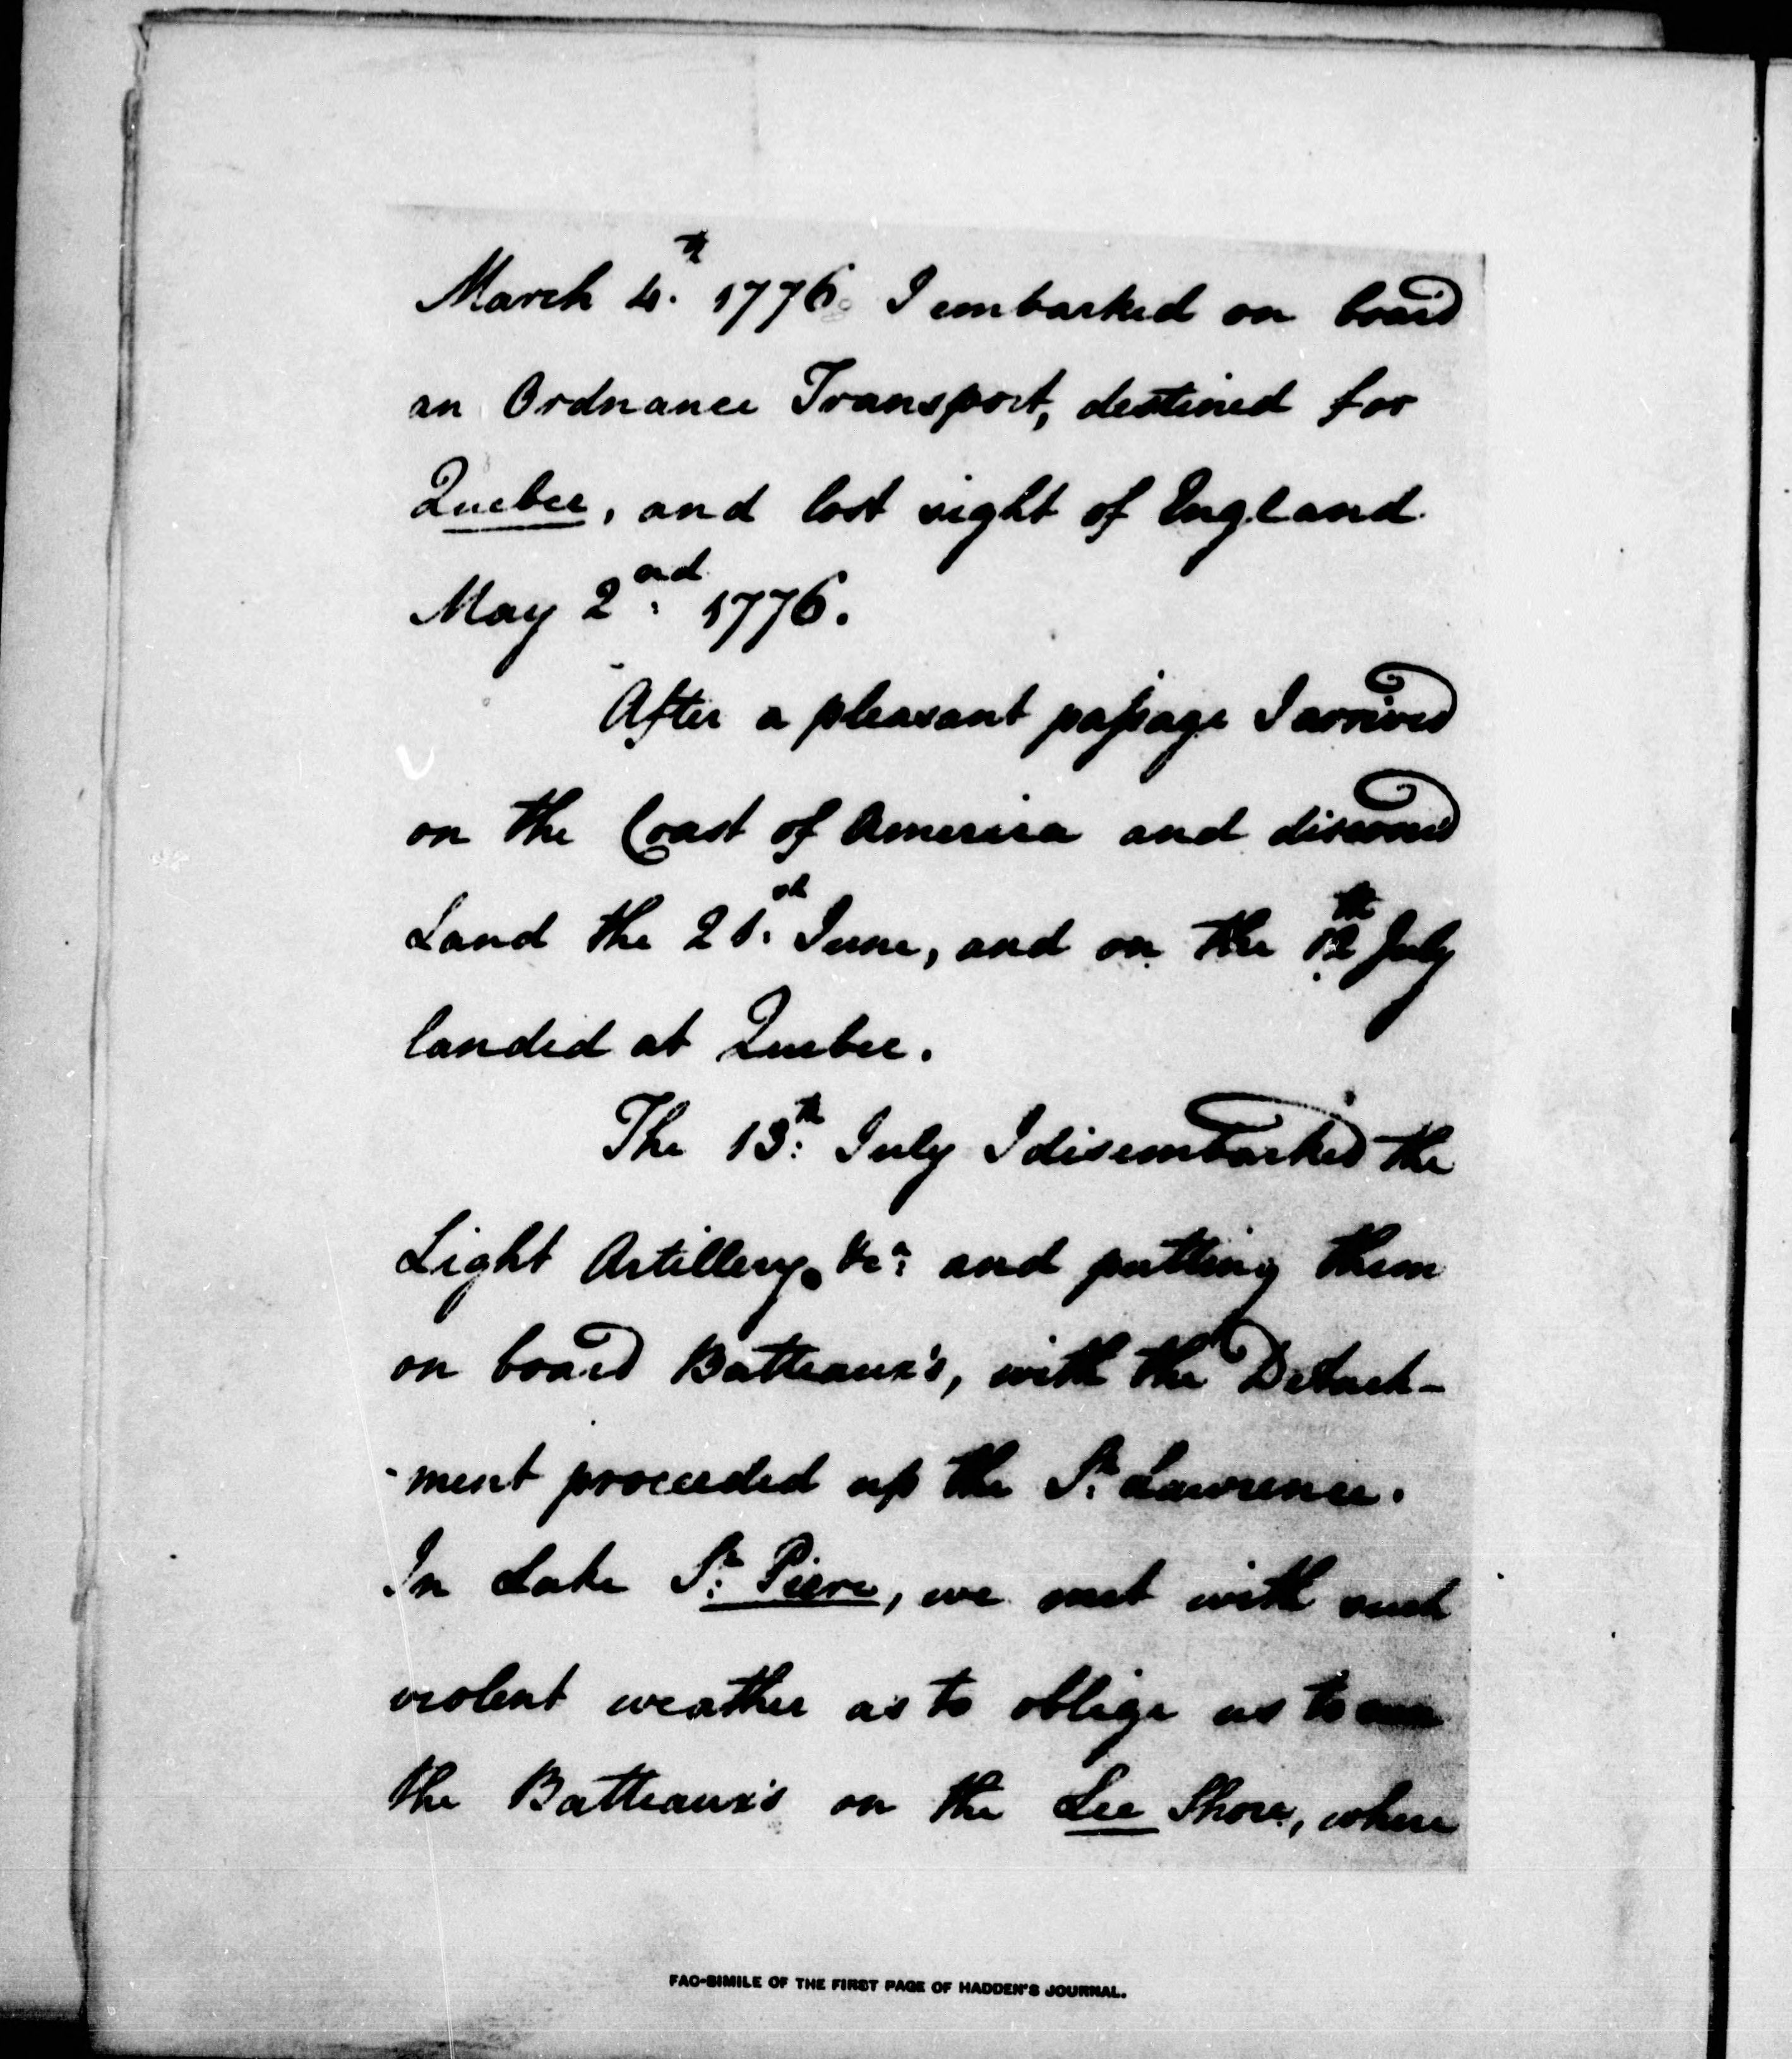 March 4th. 1776. I embarked on board
an Ordnance Transport, destined for
Quebec, and lost sight of England
May 2nd. 1776.
After a pleasant paſsage I arrived
on the Coast of America and discover'd
Land the 21st. June, and on the 12th July
landed at Quebec.
The 13th: July I disembarked the
Light Artillery, &ca: and putting them
on board Batteaux's, with the Detach-
-ment proceeded up the St. Lawrence.
In Lake St: Piere, we met with such
violent weather as to oblige us to
the Batteaux's on the Lee Shore, where
FAC-SIMILE OF THE FIRST PAGE OF HADDEN'S JOURNAL.